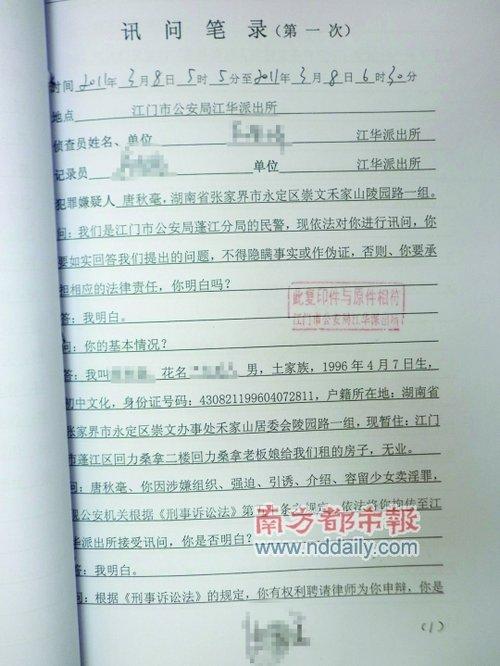 讯问笔录(第一次)
时间 2011年3月8日5时5分至2011年3月8日6时30分
地点 江门市公安局江华派出所
侦查员姓名、单位 江华派出所
记录员 单位 江华派出所
犯罪嫌疑人 唐秋毫,湖南省张家界市永定区崇文禾家山陵园路一组。
问:我们是江门市公安局蓬江分局的民警,现依法对你进行讯问,你
要如实回答我们提出的问题,不得隐瞒事实或作伪证,否则、你要承
担相应的法律责任,你明白吗?
此复印件与原件相符
江门市公安局江华派出所
答:我明白。
问:你的基本情况?
答:我叫 花名 男,土家族,1996年4月7日生,
初中文化,身份证号码:430821199604072811,户籍所在地:湖南省
张家界市永定区崇文办事处禾家山居委会陵园路一组,现暂住:江门
市蓬江区回力桑拿二楼回力桑拿老板娘给我们租的房子,无业。
问:唐秋毫、你因涉嫌组织、强迫、引诱、介绍、容留少女卖淫罪,
现公安机关根据《刑事诉讼法》第 条之规定,依法将你拘传至江
华派出所接受讯问,你是否明白?
南方都市報
www.nddaily.com
答:我明白。
问:根据《刑事诉讼法》的规定,你有权利聘请律师为你申辩,你是
(1)